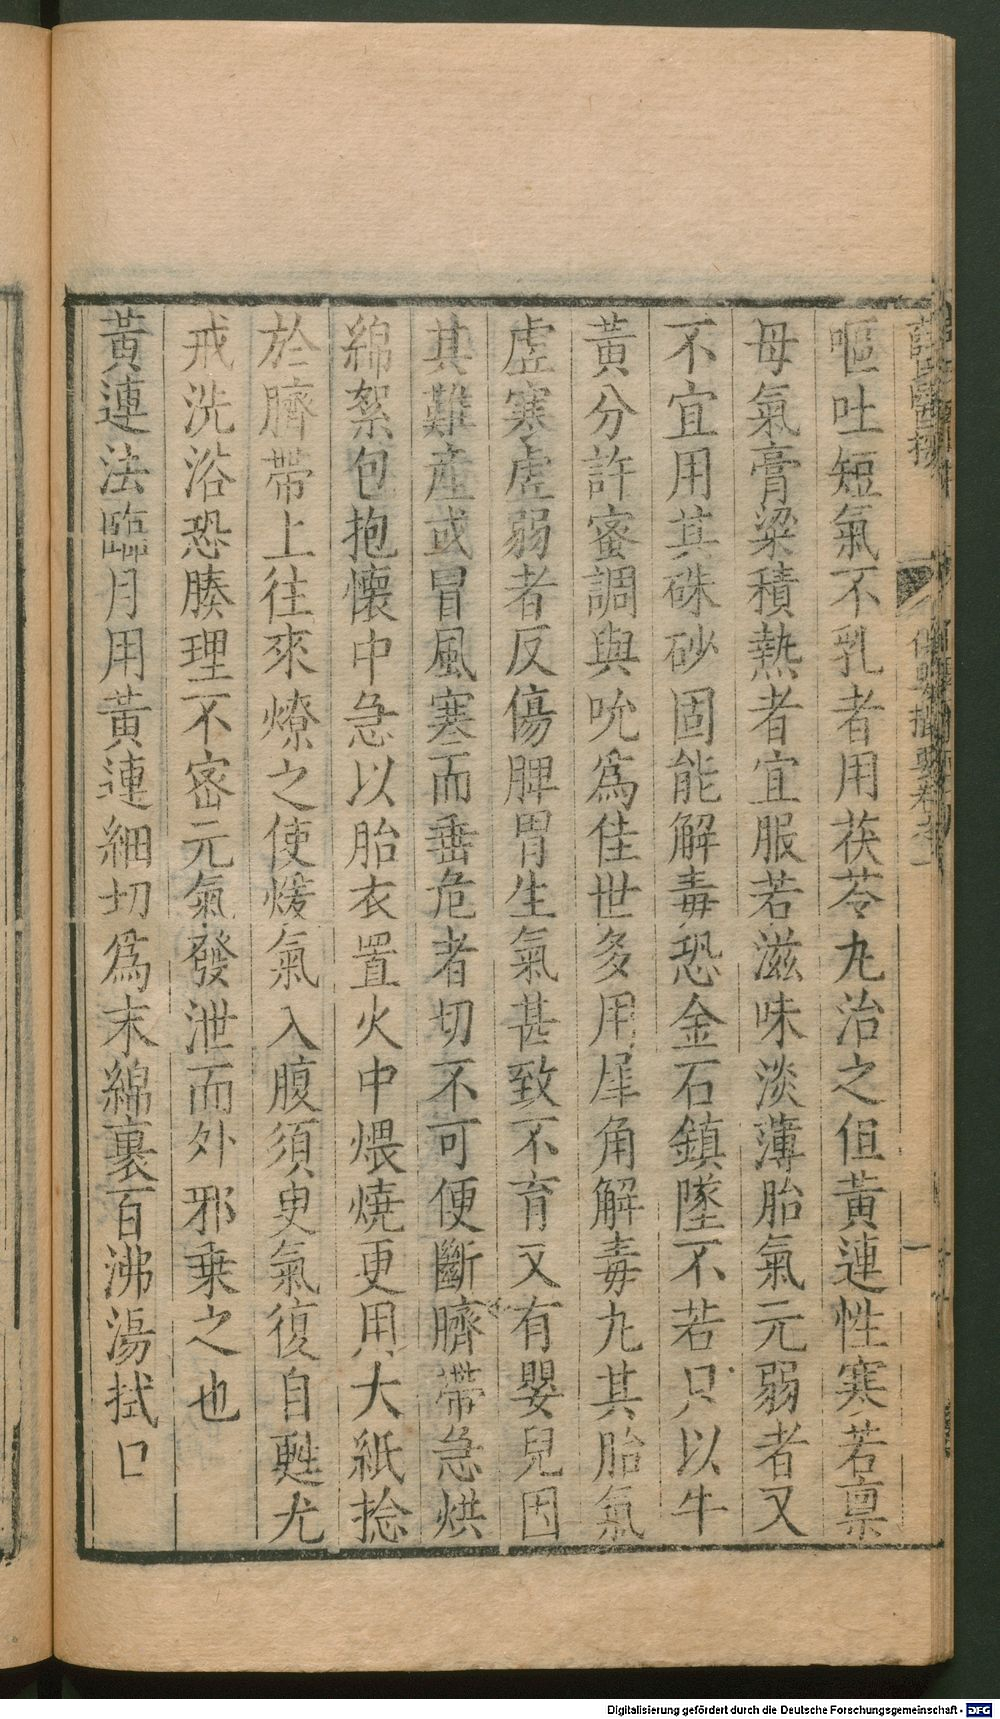 薛氏醫按 保嬰撮要卷之一 一
嘔吐短氣不乳者用茯苓丸治之但黃連性寒若稟
母氣膏粱積熱者宜服若滋味淡薄胎氣元弱者又
不宜用其硃砂固能解毒恐金石鎮墜不若只以牛
黃分許蜜調與吮爲佳世多用犀角解毒丸其胎氣
虛寒虛弱者反傷脾胃生氣甚致不育又有嬰兒因
其難產或冒風寒而垂危者切不可便斷臍帶急烘
綿絮包抱懷中急以胎衣置火中煨燒更用大紙捻
於臍帶上往來燎之使煖氣入腹須臾氣復自甦尤
戒洗浴恐腠理不密元氣發泄而外邪乗之也
黃連法臨月用黃連細切爲末綿裹百沸湯拭口
Digitalisierung gefördert durch die Deutsche Forschungsgemeinschaft - DFG